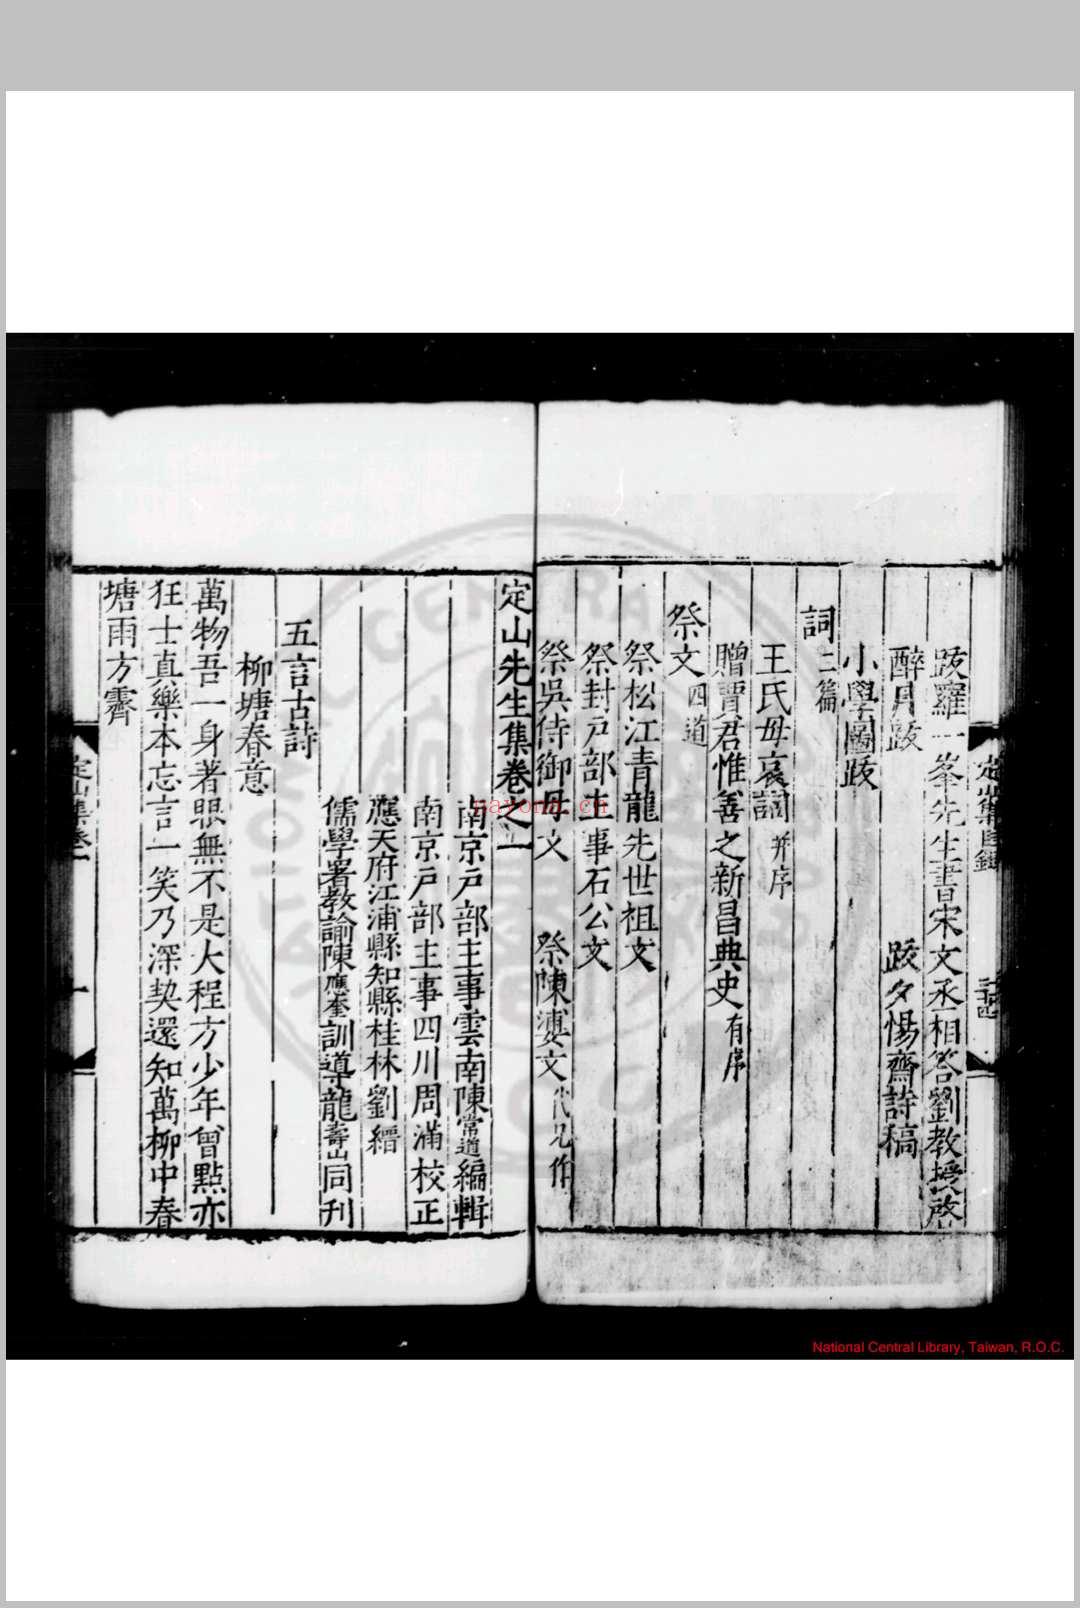 跋羅一峯先生書宋文丞相答劉教授啓
醉月跋　跋夕惕齋詩稿
小學圖跋
詞二篇
王氏母哀詞并序
贈賈君惟善之新昌典史有序
祭文四道
祭松江青龍先世祖文
祭封戸部主事石公文
祭吳侍御母文　祭陳漊文代兄作
定山先生集卷之一
南京戸部主事雲南陳常道編輯
南京戸部主事四川周滿校正
應天府江浦縣知縣桂林劉縉
儒學署教諭陳應奎訓導龍壽山同刊
五言古詩
柳塘春意
萬物吾一身著眼無不是大程方少年曾點亦
狂士真樂本忘言一笑乃深契還知萬柳中春
塘雨方霽
定山集卷一
一
nayona.cn
National Central Library, Taiwan, R.O.C.